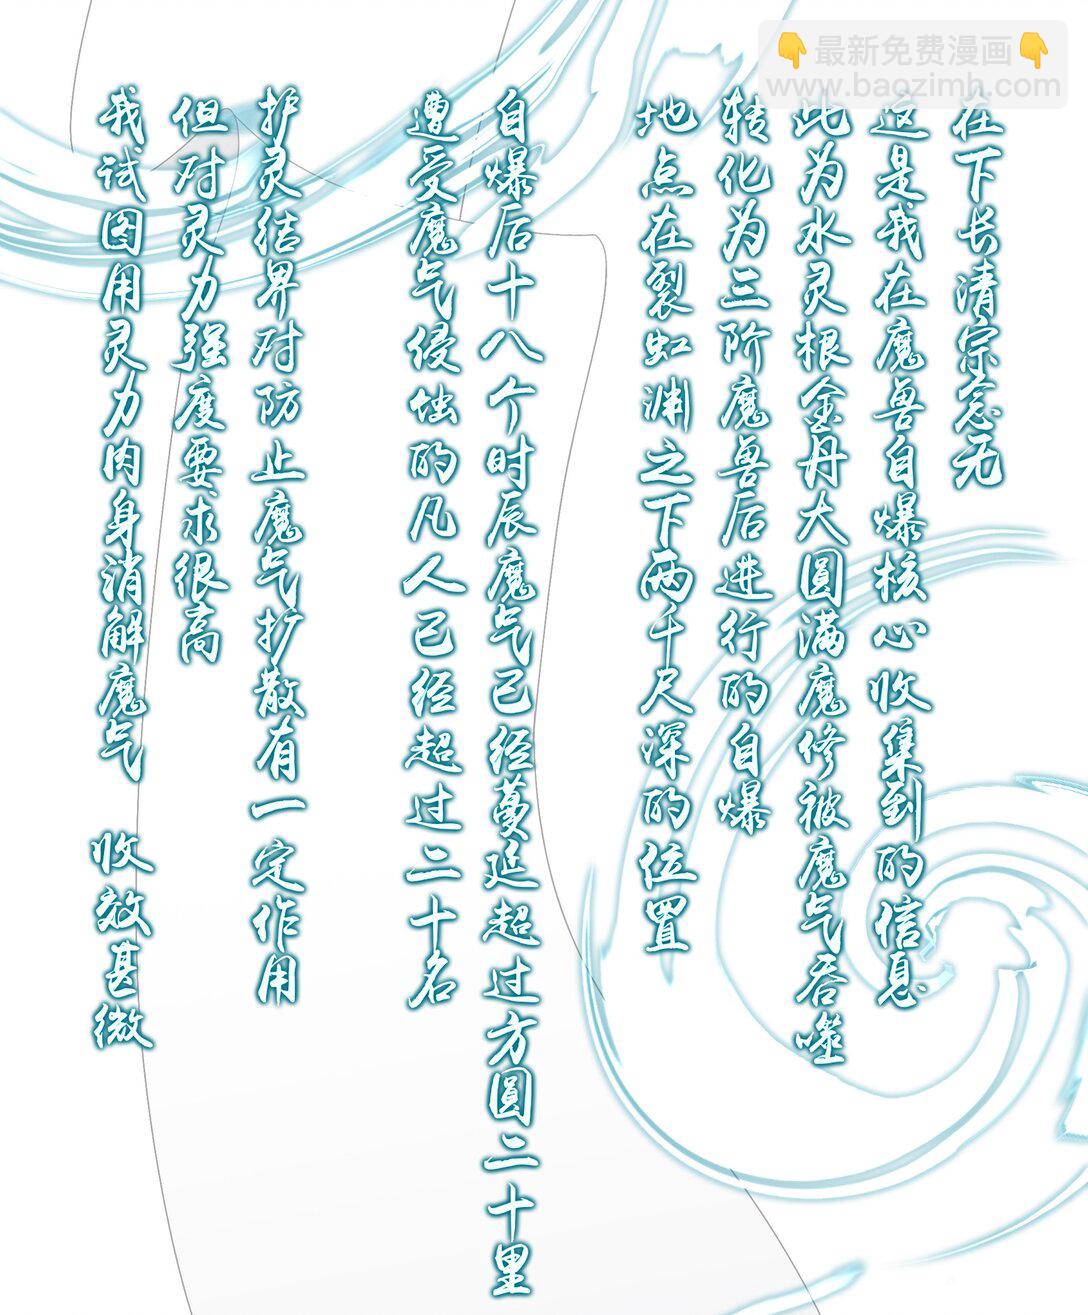 👇最新免费漫画👇
www.baozimh.com
在下长清宗念无
这是我在魔兽自爆核心收集到的信息
此为水灵根金丹大圆满魔修被魔气吞噬
转化为三阶魔兽后进行的自爆
地点在裂虹渊之下两千尺深的位置
自爆后十八个时辰魔气已经蔓延超过方圆二十里
遭受魔气侵蚀的凡人已经超过二十名
护灵结界对防止魔气扩散有一定作用
但对灵力强度要求很高
我试图用灵力肉身消解魔气 收效甚微